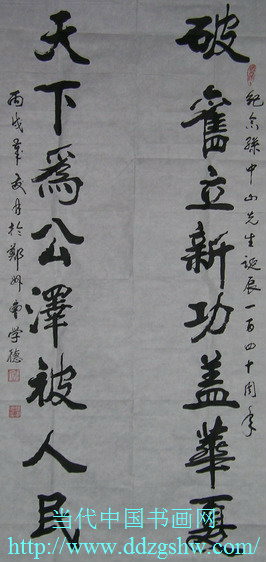 破舊立新功蓋華夏
纪念孫中山先生誕辰一百四十周年
天下為公澤被人民
丙戌年友月於鄭州曹学德
当代中国书画网
http://www.ddzgshw.com/